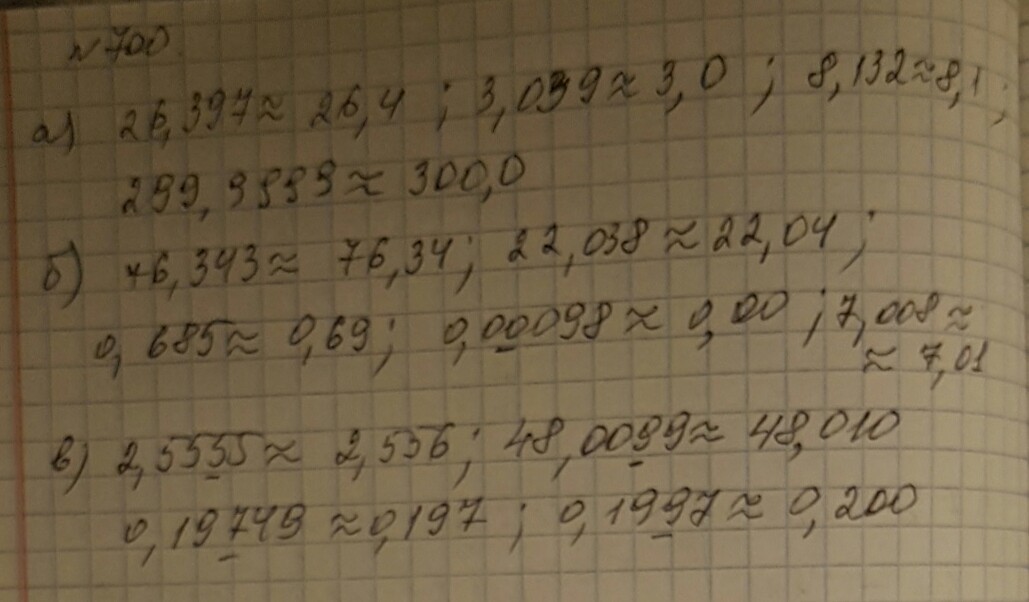 №700
а) 26,397≈ 26,4 ; 3,039≈3,0 ; 8,132≈8,1;
299,9999≈ 300,0
б) 76,343≈ 76,34; 22,038≈22,04 ;
0,685≈ 0,69; 0,00098≈ 0,00 ; 7,008≈
≈ 7,01
в) 2,5555≈ 2,556; 48,0099≈ 48,010
0,19749 ≈0,197 ; 0,1997≈ 0,200